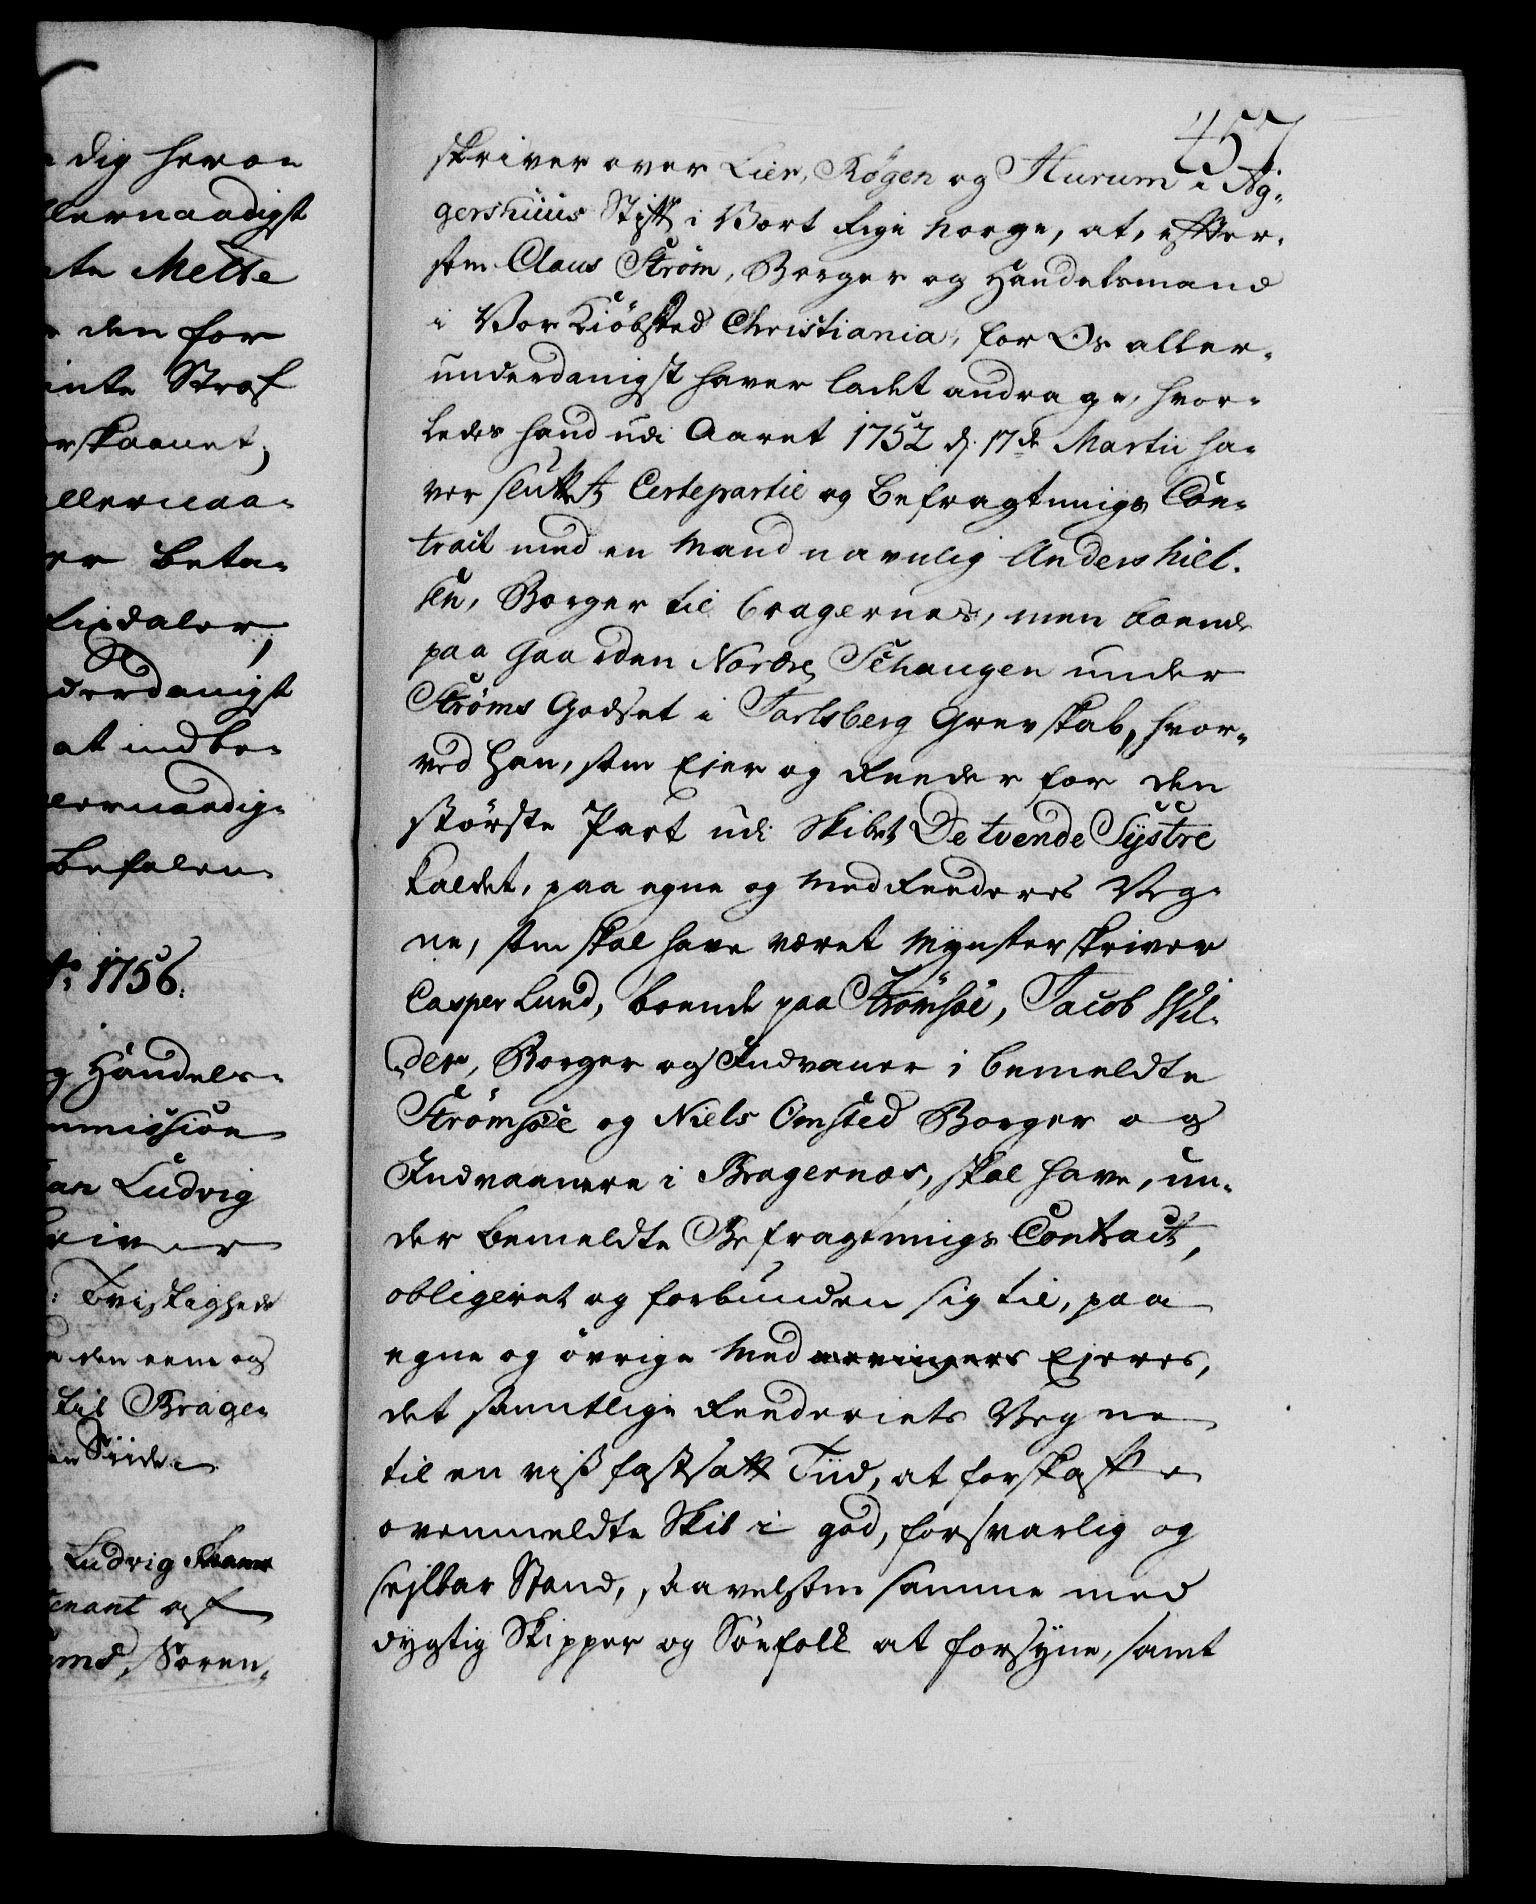 dig heron
llernaadigst
ate Mette
den for
inte Straf
rskaanet,
llernaa-
er beta-
Rixdaler,
derdanigst
at indbe-
lernaadig-
befalen.
Ao 1756.
g Handels-
mmission
an Ludvig
kriver
Tvistighede
den eene og
til Brage-
en Siide.
Ludvig
tenant og
Lund, Soren-
457
skriver over Lier, Røgen og Hurum i Ag-
gershuus Stift i Vort Rige Norge, at, efter-
som Claus Strøm, Borger og Handelsmand
i Vor Kiøbsted Christiania, for Os aller-
underdanigst haver ladet andrage, hvor-
ledes hand udi Aaret 1752 d. 17de Martii ha-
ver sluttet Certepartie og Befragtnings Con-
tract med en Mand navnlig Anders Niel-
sen, Borger til Bragernæs, men boende
paa Gaarden Nordre Schaugen under
Strøms Godset i Jarlsberg Grevskab, hvor-
ved Han, som Ejer og Reeder for den
største Part udi Skibet De tvende Systre
kaldet, paa egne og Medreederes Veg-
ne, som skal have været Mynsterskriver
Casper Lund, boende paa Strømsøe, Jacob Wil-
der, Borger og Indvaaner i bemeldte
Strømsøe og Niels Omsted Borger og
Indvaanere i Bragernæs, skal have, un-
der bemeldte Befragtnings Contract,
obligeret og forbunden sig til, paa
egne og øvrige Med Ejeres,
det samtlige Reederiets Vegne
til en viss fastsatt Tiid, at forskaffe
ovenmeldte Skib i god, forsvarlig og
sejlbar Stand, saavelsom samme med
dygtig Skipper og Søefolk at forsyne, samt